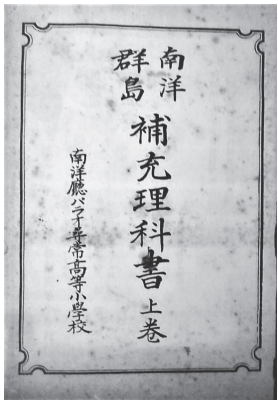 南洋
群島
補充理科書 上巻
南洋廳パラオ尋常高等小學校